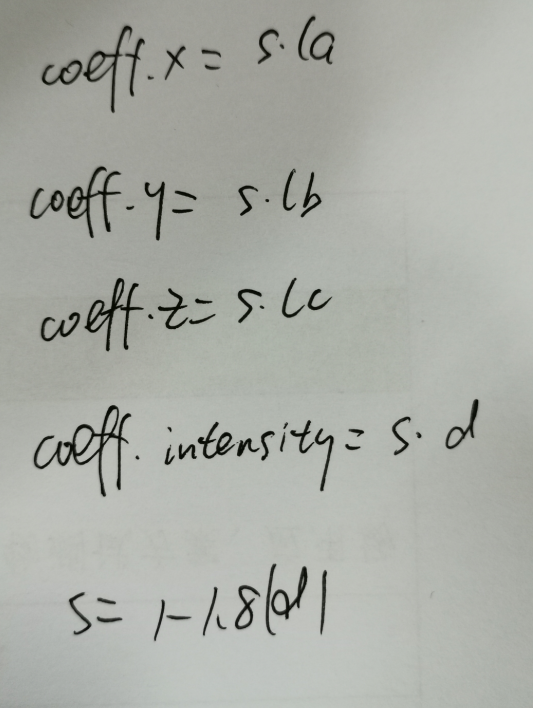 coeff.x = s.la
coeff.y = s.lb
coeff.z = s.lc
coeff.intensity = s.d
s = 1-1.8|d|